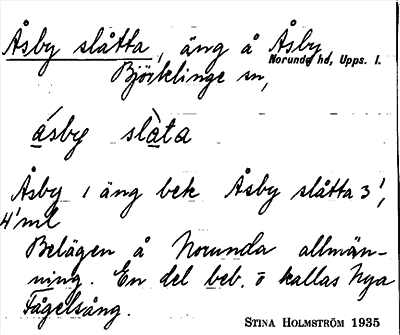 Åsby slåtta, äng å Åsby
Norunda hd, Upps. l.
Björklinge sn,
ásby slàta
Åsby 1 äng bek Åsby slåtta 3',
4' ml
Belägen å Norunda allmän-
ning. En del beb. o kallas Nya
Fågelsång.
STINA HOLMSTRÖM 1935